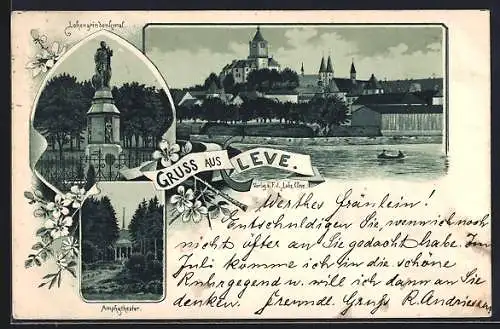 Lohengrindenkmal.
GRUSS AUS CLEVE.
Amphitheater.
Werthes Fräulein!
Entschuldigen Sie, wenn ich noch
nicht öfter an Sie gedacht habe. Im
Juli komme ich in die schöne
Ruhrgegend u. will ich dann an Sie
denken. Freundl. Gruß R.